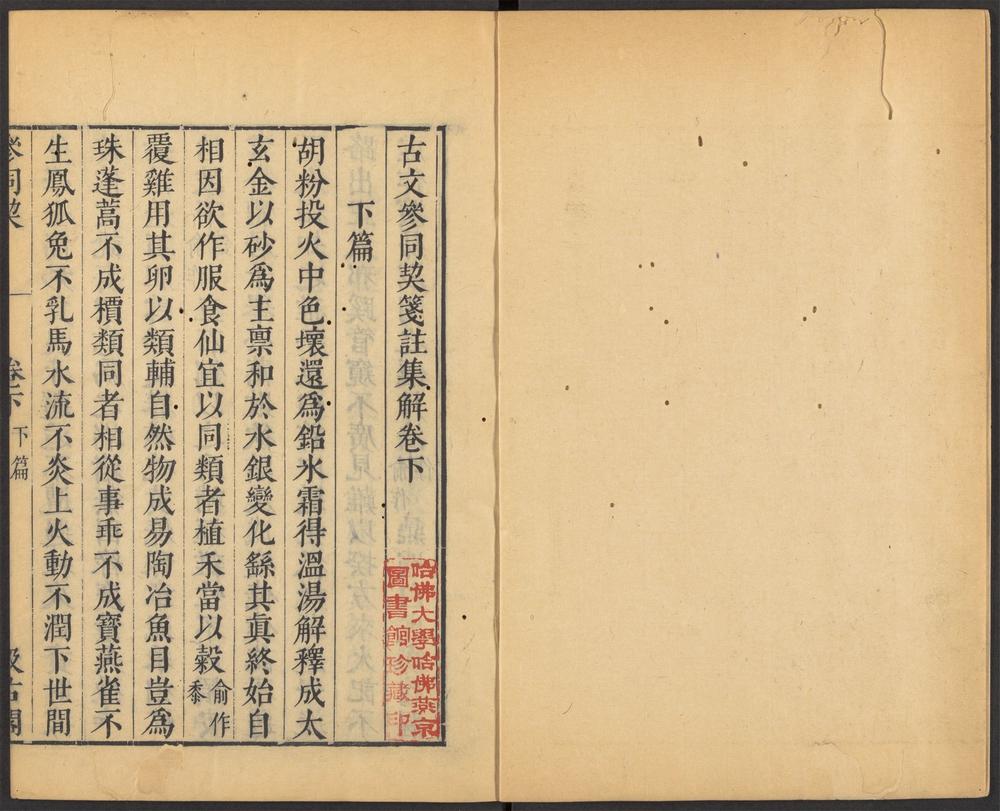 古文參同契箋註集解卷下
下篇
胡粉投火中色壞還為鉛氷霜得溫湯解釋成太
玄金以砂為主禀和於水銀變化繇其眞終始自
相因欲作服食仙宜以同類者植禾當以穀俞作黍
覆雞用其卵以類輔自然物成易陶冶魚目豈為
珠蓬蒿不成檟類同者相從事乖不成寶燕雀不
生鳳狐兔不乳馬水流不炎上火動不潤下世間
參同契
卷下
下篇
汲古閣
哈佛大學哈佛燕京
圖書館珍藏印